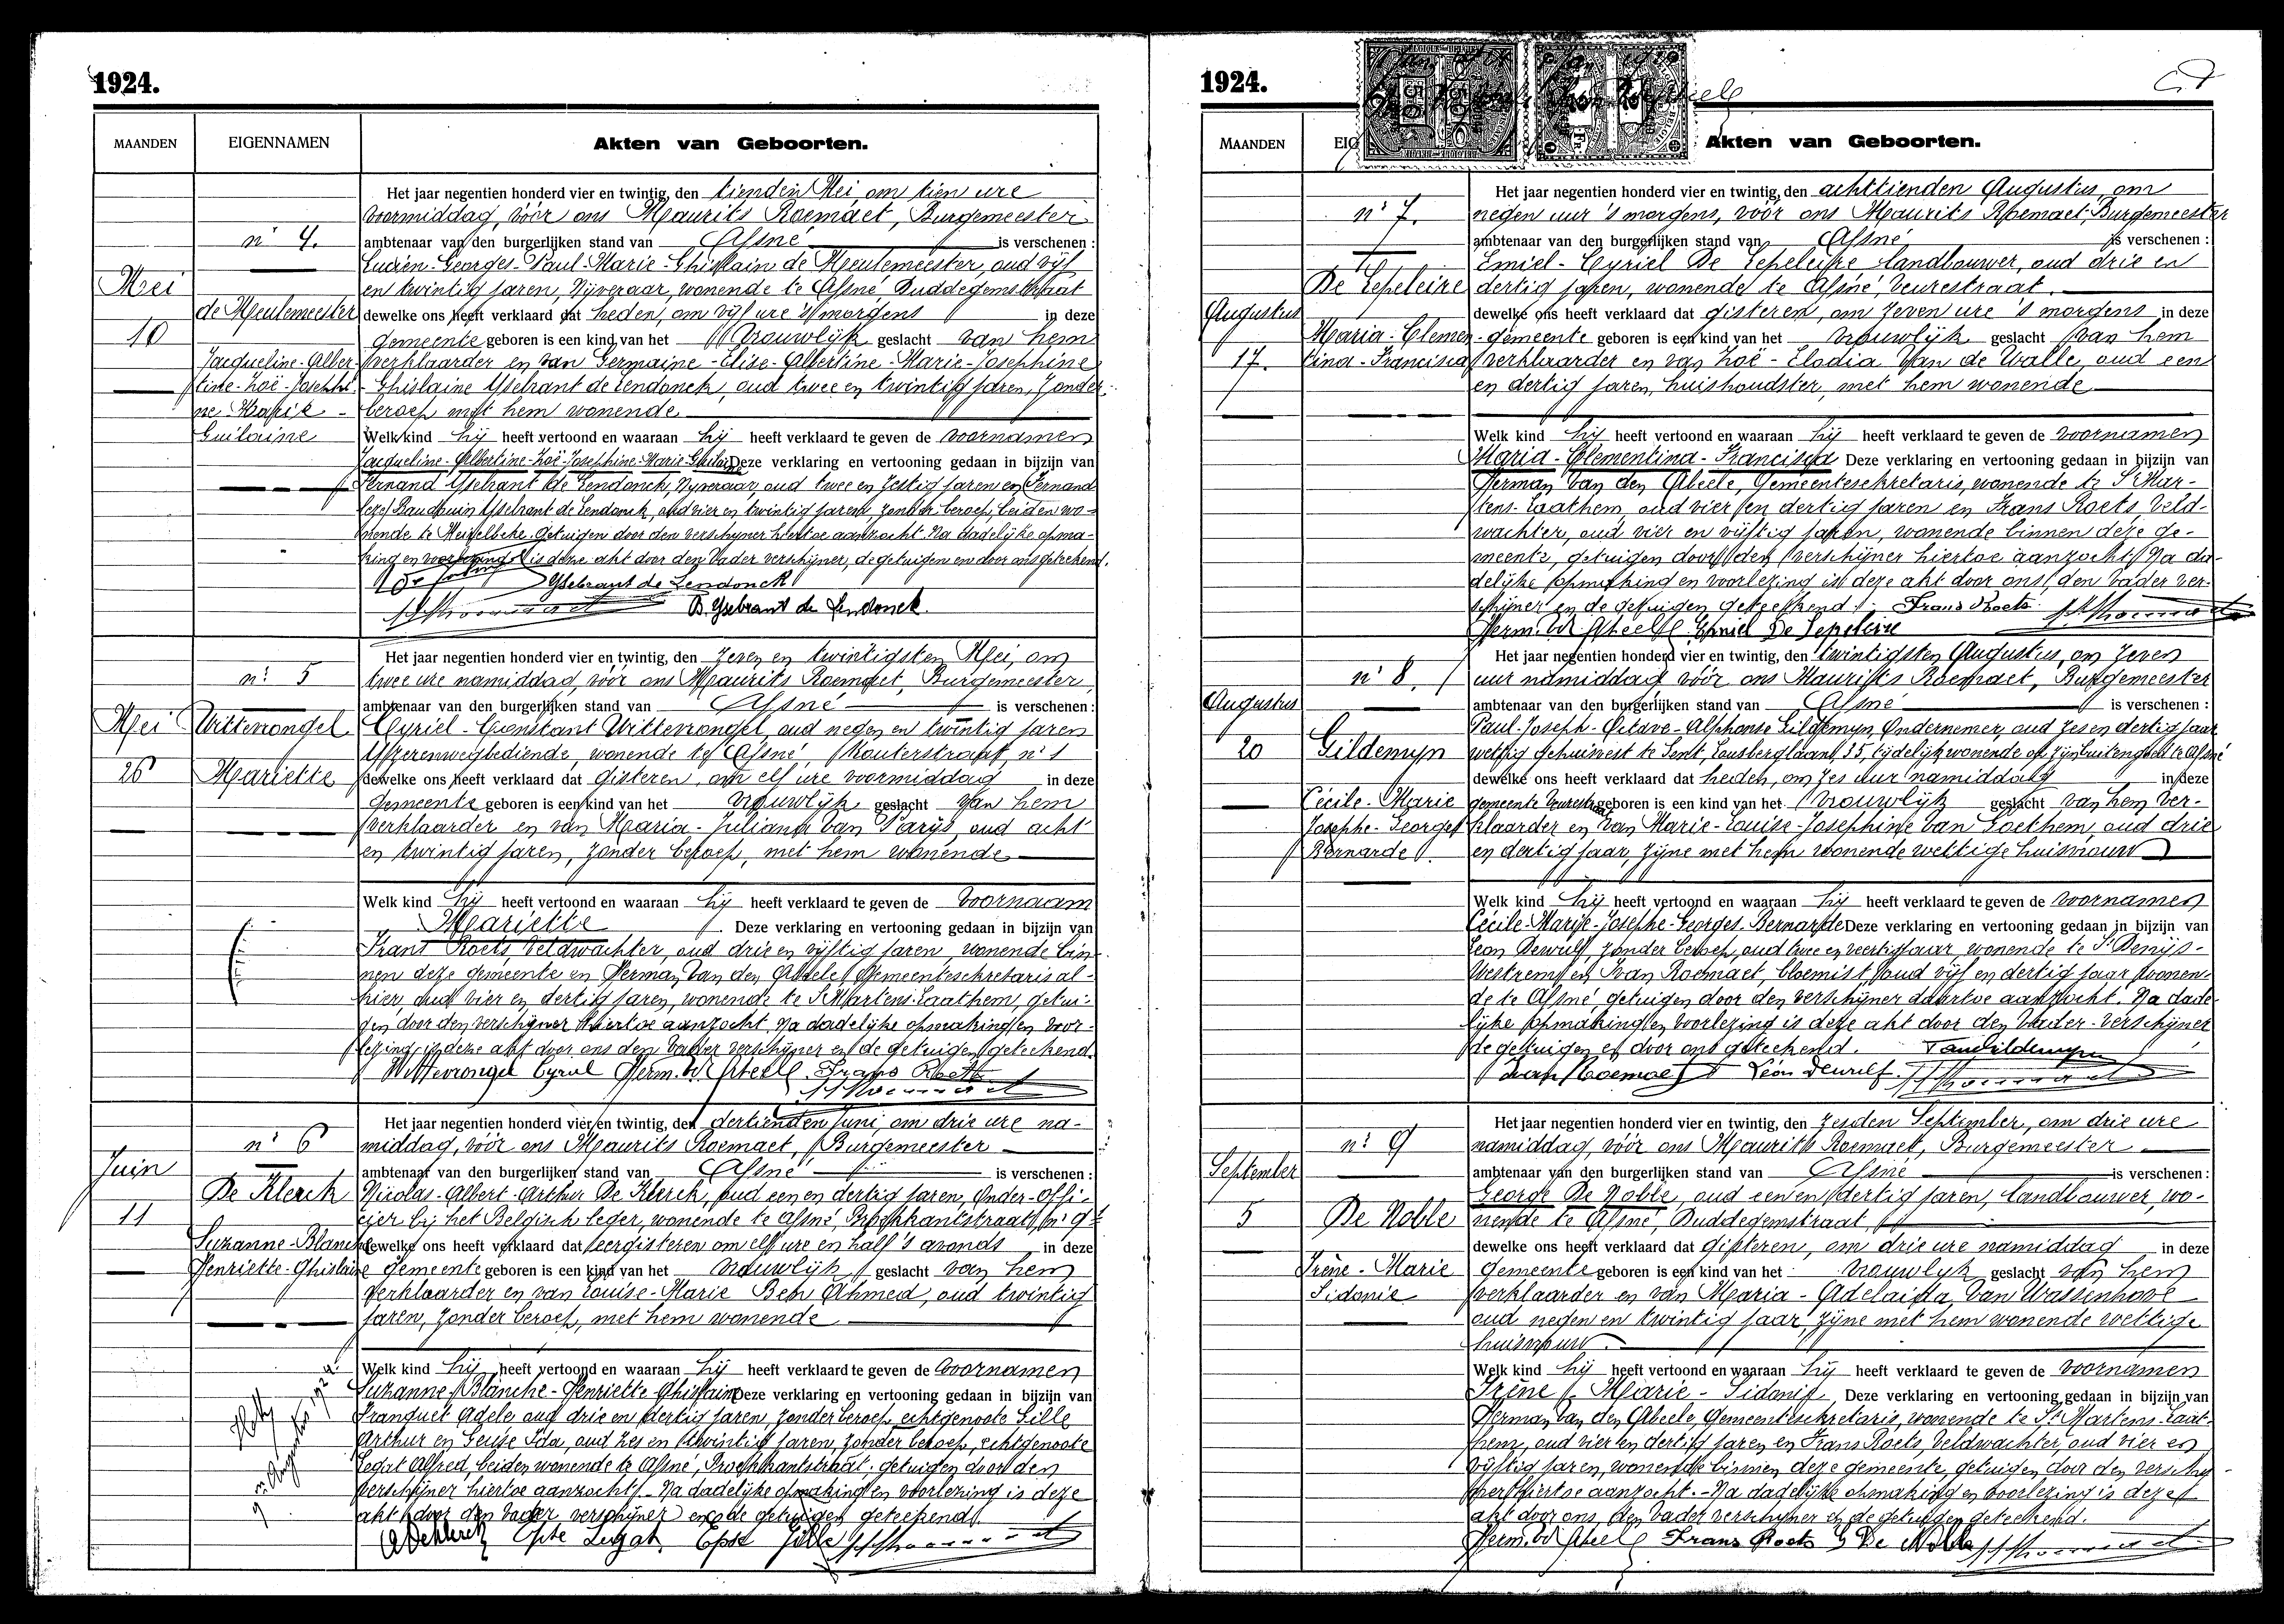 1924.
MAANDEN
EIGENNAMEN
Akten van Geboorten.
n° 4.
Mei
10
de Meulemeester
Jacqueline-Alber-
tine-Zoë-Josephi-
ne Marie -
Guilaine
Het jaar negentien honderd vier en twintig, den tienden Mei, om tien ure
voormiddag, vóór ons Maurits Roemaet, Burgemeester
ambtenaar van den burgerlijken stand van Afsné is verschenen :
Lucien-Georges-Paul-Marie-Ghislain de Meulemeester, oud vijf
en twintig jaren, Nijveraar, wonende te Afsné, Duddegemstraat
dewelke ons heeft verklaard dat heden, om vijf ure 's morgens in deze
gemeente geboren is een kind van het Vrouwlijk geslacht van hem
verklaarder en van Germaine-Elise-Albertine-Marie-Josephine
- Ghislaine Ysebrant de Lendonck, oud twee en twintig jaren, zonder
beroep met hem wonende
Welk kind hij heeft vertoond en waaraan hij heeft verklaard te geven de voornamen
Jacqueline-Albertine-Zoë-Josephine-Marie-Guilaine Deze verklaring en vertooning gedaan in bijzijn van
Fernand Ysebrant de Lendonck, Nijveraar, oud twee en zestig jaren en Fernand
Baudouin Ysebrant de Lendonck, oud vier en twintig jaren, zonder beroep, beiden wo-
nende te Meigelbeke getuigen door den verschijner hiertoe aanzocht. Na dadelijke opma-
king en voorlezing is deze akt door den Vader verschijner, de getuigen en door ons geteekend.
Ysebrant de Lendonck
B. Ysebrant de Lendonck.
n° 5
Mei
26
Wittevrongel
Mariette
Het jaar negentien honderd vier en twintig, den zeven en twintigsten Mei, om
twee ure namiddag, vóór ons Maurits Roemaet, Burgemeester,
ambtenaar van den burgerlijken stand van Afsné is verschenen :
Cyriel-Constant Wittevrongel, oud negen en twintig jaren
Yzerenwegbediende, wonende te Afsné, Kouterstraat, n° 1
dewelke ons heeft verklaard dat gisteren, om elf ure voormiddag in deze
gemeente geboren is een kind van het vrouwlijk geslacht van hem
verklaarder en van Maria-Juliana Van Parijs, oud acht
en twintig jaren, zonder beroep, met hem wonende
Welk kind hij heeft vertoond en waaraan hij heeft verklaard te geven de voornaam
Mariette. Deze verklaring en vertooning gedaan in bijzijn van
Frans Roets, Veldwachter, oud drie en vijftig jaren, wonende bin-
nen deze gemeente en Herman Van den Abeele, Gemeentesekretaris al-
hier, oud vier en dertig jaren, wonende te St Martens-Laathem, getui-
gen door den verschijner hiertoe aanzocht. Na dadelijke opmaking en voor-
lezing is deze akt door ons den Vader verschijner en de getuigen geteekend.
Wittevrongel Cyriel Herm. Vd Abeele. Frans Roets
n° 6
Juin
11
De Klerck
Suzanne-Blanche
Henriette-Ghislaine
Het jaar negentien honderd vier en twintig, den dertienden Juni, om drie ure na-
middag, vóór ons Maurits Roemaet, Burgemeester
ambtenaar van den burgerlijken stand van Afsné is verschenen :
Nicolas-Albert-Arthur De Klerck, oud een en dertig jaren, Onder-offi-
cier bij het Belgisch leger, wonende te Afsné, Broekkantstraat, n° 9
dewelke ons heeft verklaard dat eergisteren om elf ure en half 's avonds in deze
gemeente geboren is een kind van het vrouwlijk geslacht van hem
verklaarder en van Louise-Marie Ben Ahmed, oud twintig
jaren, zonder beroep, met hem wonende
Welk kind hij heeft vertoond en waaraan hij heeft verklaard te geven de voornamen
Suzanne-Blanche-Henriette-Ghislaine Deze verklaring en vertooning gedaan in bijzijn van
Franquet Adele oud drie en dertig jaren, zonder beroep echtgenoote Gille
Arthur en Geuse Ida, oud zes en twintig jaren, zonder beroep, echtgenoote
Legat Alfred, beiden wonende te Afsné, Broekkantstraat, getuigen door den
verschijner hiertoe aanzocht. - Na dadelijke opmaking en voorlezing is deze
akt door den Vader verschijner en de getuigen geteekend.
ADeklerck Epse Legat Epse Gille
1924.
MAANDEN
Akten van Geboorten.
n° 7.
De Lepeleire
Augustus
17.
Maria-Clemen-
tina-Francisca
Het jaar negentien honderd vier en twintig, den achttienden Augustus, om
negen uur 's morgens, vóór ons Maurits Roemaet, Burgemeester
ambtenaar van den burgerlijken stand van Afsné is verschenen :
Emiel-Cyriel De Lepeleire landbouwer, oud drie en
dertig jaren, wonende te Afsné, Veurestraat.
dewelke ons heeft verklaard dat gisteren, om zeven ure 's morgens in deze
gemeente geboren is een kind van het vrouwlijk geslacht van hem
verklaarder en van Zoë-Elodia Van de Walle, oud een
en dertig jaren, huishoudster, met hem wonende
Welk kind hij heeft vertoond en waaraan hij heeft verklaard te geven de voornamen
Maria-Clementina-Francisca Deze verklaring en vertooning gedaan in bijzijn van
Herman Van den Abeele, Gemeentesekretaris, wonende te St Mar-
tens-Laathem, oud vier en dertig jaren en Frans Roets, Veld-
wachter, oud vier en vijftig jaren, wonende binnen deze ge-
meente, getuigen door den verschijner hiertoe aanzocht. Na da-
delijke opmaking en voorlezing is deze akt door ons, den Vader ver-
schijner en de getuigen geteekend. Frans Roets.
Herm. Vd Abeele Emiel De Lepeleire
n° 8.
Augustus
20
Gildemyn
Cécile-Marie
Josephe-Georges
Bernarde
Het jaar negentien honderd vier en twintig, den twintigsten Augustus, om zeven
uur namiddag vóór ons Maurits Roemaet, Burgemeester
ambtenaar van den burgerlijken stand van Afsné is verschenen :
Paul-Joseph-Octave-Alphonse Gildemyn, Ondernemer, oud zes en dertig jaar
wettig gehuisvest te Gent, Lousbergslaan, 35, tijdelijk wonende op zijn buitengoed te Afsné
dewelke ons heeft verklaard dat heden, om zes uur namiddag in deze
gemeente Veurestraat geboren is een kind van het vrouwlijk geslacht van hem ver-
klaarder en van Marie-Louise-Josephine Van Goethem, oud drie
en dertig jaar, zijne met hem wonende wettige huisvrouw
Welk kind hij heeft vertoond en waaraan hij heeft verklaard te geven de voornamen
Cécile-Marie-Josephe-Georges-Bernarde Deze verklaring en vertooning gedaan in bijzijn van
Leon Dewulf, zonder beroep, oud twee en veertig jaar, wonende te St Denijs-
Westrem, en Ivan Roemaet, bloemist, oud vijf en dertig jaar wonen-
de te Afsné, getuigen door den verschijner daartoe aanzocht. Na dade-
lijke opmaking en voorlezing is deze akt door den Vader-verschijner
de getuigen en door ons geteekend.
Ivan Roemaet Léon Dewulf.
n° 9
September
5
De Noble
Irène-Marie
Sidonie
Het jaar negentien honderd vier en twintig, den zesden September, om drie ure
namiddag, vóór ons Maurits Roemaet, Burgemeester
ambtenaar van den burgerlijken stand van Afsné is verschenen :
George De Noble, oud een en dertig jaren, landbouwer, wo-
nende te Afsné, Duddegemstraat
dewelke ons heeft verklaard dat gisteren, om drie ure namiddag in deze
gemeente geboren is een kind van het vrouwlijk geslacht van hem
verklaarder en van Maria-Adelaida Van Wassenhove
oud negen en twintig jaar, zijne met hem wonende wettige
huisvrouw.
Welk kind hij heeft vertoond en waaraan hij heeft verklaard te geven de voornamen
Irène-Marie-Sidonie, Deze verklaring en vertooning gedaan in bijzijn van
Herman Van den Abeele, Gemeentesekretaris, wonende te St Martens-Laat-
hem, oud vier en dertig jaren en Frans Roets, Veldwachter, oud vier en
vijftig jaren, wonende binnen deze gemeente, getuigen door den verschij-
ner hiertoe aanzocht. - Na dadelijke opmaking en voorlezing is deze
akt door ons, den Vader verschijner en de getuigen geteekend.
Herm. Vd Abeele Frans Roets G De Noble